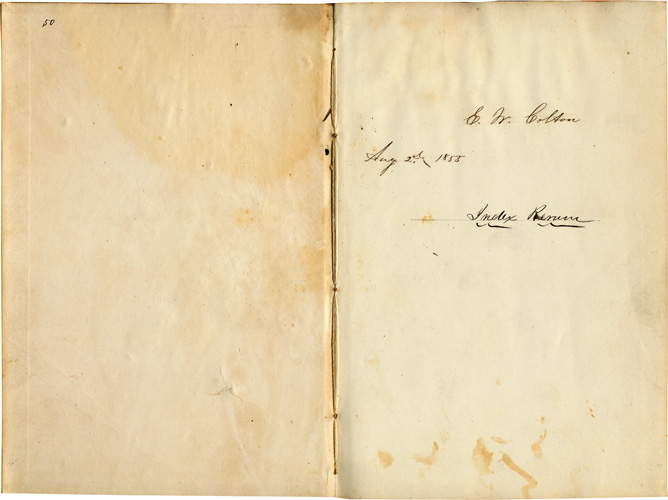 50
E. W. Colton
Aug 2nd, 1855
Index Rerum